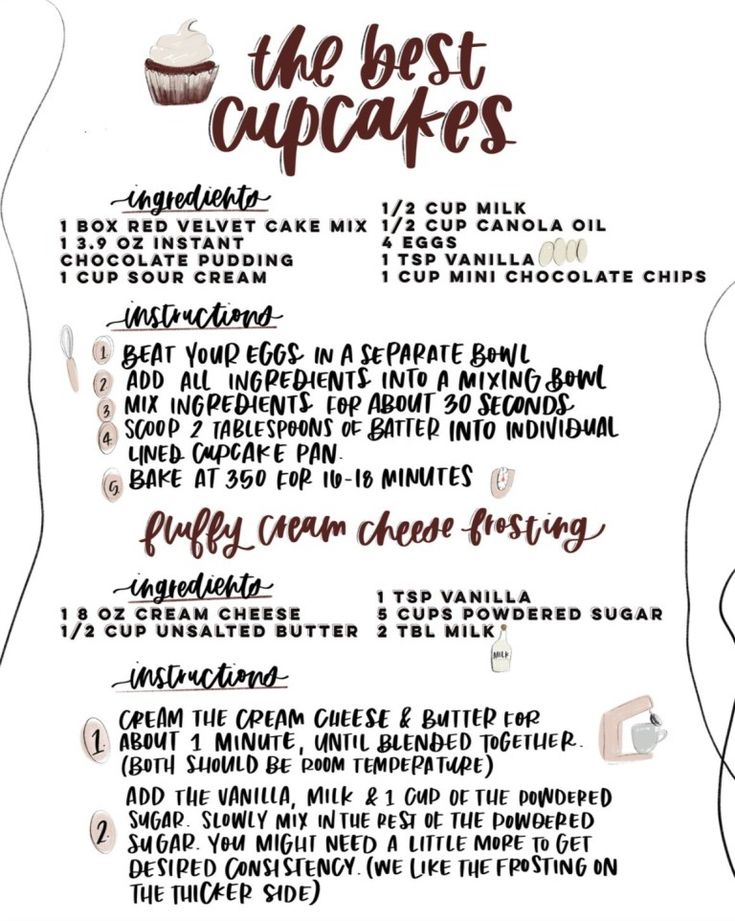 the best
cupcakes
ingredients
1 BOX RED VELVET CAKE MIX
1 3.9 OZ INSTANT
CHOCOLATE PUDDING
1 CUP SOUR CREAM
1/2 CUP MILK
1/2 CUP CANOLA OIL
4 EGGS
1 TSP VANILLA
1 CUP MINI CHOCOLATE CHIPS
instructions
1. BEAT YOUR EGGS IN A SEPARATE BOWL
2 ADD ALL INGREDIENTS INTO A MIXING BOWL
3 MIX INGREDIENTS FOR ABOUT 30 SECONDS
4. SCOOP 2 TABLESPOONS OF BATTER INTO INDIVIDUAL
LINED CUPCAKE PAN.
5 BAKE AT 350 FOR 16-18 MINUTES
fluffy cream cheese frosting
ingredients
1 8 OZ CREAM CHEESE
1/2 CUP UNSALTED BUTTER
1 TSP VANILLA
5 CUPS POWDERED SUGAR
2 TBL MILK
MILK
instructions
1. CREAM THE CREAM CHEESE & BUTTER FOR
ABOUT 1 MINUTE, UNTIL BLENDED TOGETHER.
(BOTH SHOULD BE ROOM TEMPERATURE)
2. ADD THE VANILLA, MILK & 1 CUP OF THE POWDERED
SUGAR. SLOWLY MIX IN THE REST OF THE POWDERED
SUGAR. YOU MIGHT NEED A LITTLE MORE TO GET
DESIRED CONSISTENCY. (WE LIKE THE FROSTING ON
THE THICKER SIDE)